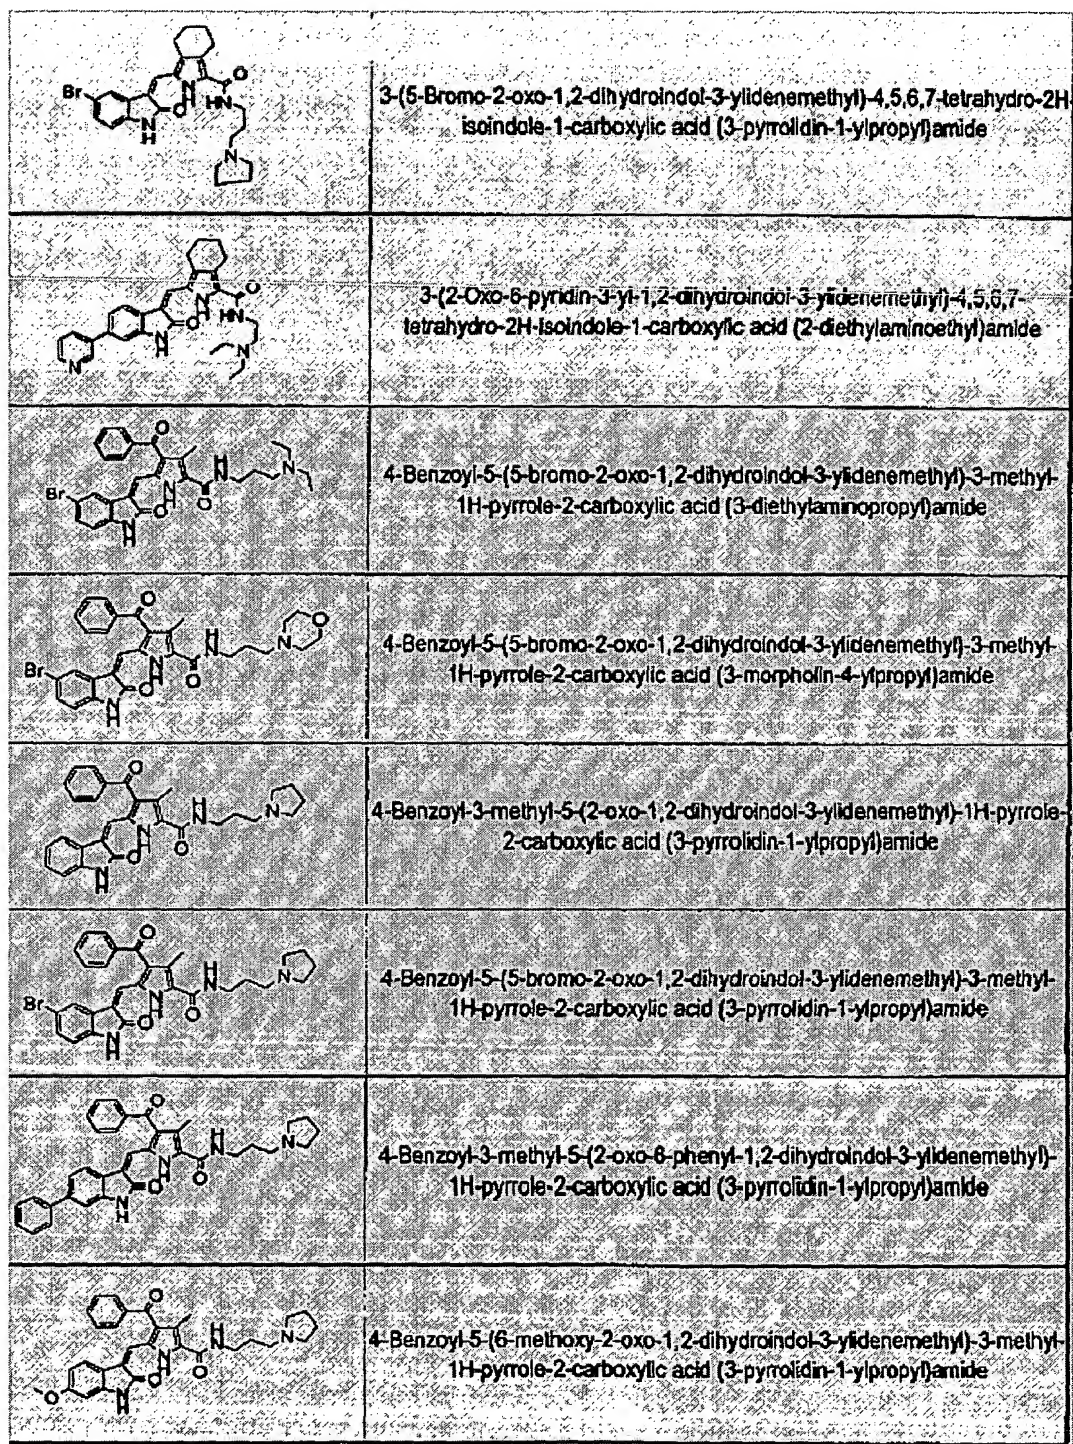 Br
N
H
O
HN
N
3-(5-Bromo-2-oxo-1,2-dihydroindol-3-ylidenemethyl)-4,5,6,7-tetrahydro-2H-
isoindole-1-carboxylic acid (3-pyrrolidin-1-ylpropyl)amide
3-(2-Oxo-6-pyridin-3-yl-1,2-dihydroindol-3-ylidenemethyl)-4,5,6,7-
tetrahydro-2H-isoindole-1-carboxylic acid (2-diethylaminoethyl)amide
4-Benzoyl-5-(5-bromo-2-oxo-1,2-dihydroindol-3-ylidenemethyl)-3-methyl-
1H-pyrrole-2-carboxylic acid (3-diethylaminopropyl)amide
4-Benzoyl-5-(5-bromo-2-oxo-1,2-dihydroindol-3-ylidenemethyl)-3-methyl-
1H-pyrrole-2-carboxylic acid (3-morpholin-4-ylpropyl)amide
4-Benzoyl-3-methyl-5-(2-oxo-1,2-dihydroindol-3-ylidenemethyl)-1H-pyrrole-
2-carboxylic acid (3-pyrrolidin-1-ylpropyl)amide
4-Benzoyl-5-(5-bromo-2-oxo-1,2-dihydroindol-3-ylidenemethyl)-3-methyl-
1H-pyrrole-2-carboxylic acid (3-pyrrolidin-1-ylpropyl)amide
4-Benzoyl-3-methyl-5-(2-oxo-6-phenyl-1,2-dihydroindol-3-ylidenemethyl)-
1H-pyrrole-2-carboxylic acid (3-pyrrolidin-1-ylpropyl)amide
4-Benzoyl-5-(6-methoxy-2-oxo-1,2-dihydroindol-3-ylidenemethyl)-3-methyl-
1H-pyrrole-2-carboxylic acid (3-pyrrolidin-1-ylpropyl)amide